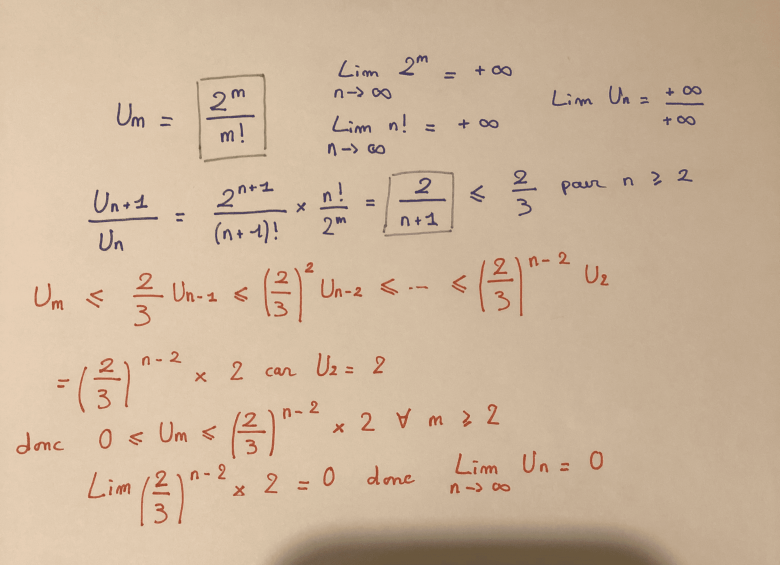 Lim 2^m = +∞
n→∞
U_m = 2^m / m!
Lim n! = +∞
n→∞
Lim U_n = +∞ / +∞
U_{n+1} / U_n = 2^{n+1} / (n+1)! × n! / 2^m = 2 / (n+1) ≤ 2/3 pour n ≥ 2
U_m ≤ 2/3 U_{n-1} ≤ (2/3)^2 U_{n-2} ≤ ... ≤ (2/3)^{n-2} U_2
= (2/3)^{n-2} × 2 car U_2 = 2
donc 0 ≤ U_m ≤ (2/3)^{n-2} × 2 ∀ m ≥ 2
Lim (2/3)^{n-2} × 2 = 0 donc Lim U_n = 0
n→∞